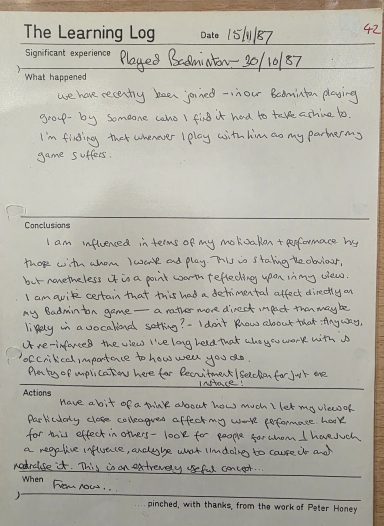 The Learning Log Date 15/11/87 42
Significant experience Played Badminton - 30/10/87
What happened
We have recently been joined - in our Badminton playing
group - by someone who I find it hard to take a shine to.
I'm finding that whenever I play with him as my partner my
game suffers.
Conclusions
I am influenced in terms of my motivation + performance by
those with whom I work and play. This is stating the obvious,
but nonetheless it is a point worth reflecting upon in my view.
I am quite certain that this had a detrimental affect directly on
my Badminton game — a rather more direct impact than may be
likely in a vocational setting? - I don't know about that. Anyway,
it re-inforced the view I've long held that who you work with is
of critical importance to how well you do.
Plenty of implications here for Recruitment/Selection for just one
instance!
Actions
Have a bit of a think about how much I let my view of
particularly close colleagues affect my work performance. Look
for this effect in others - look for people for whom I have such
a negative influence, analyse what I'm doing to cause it and
neutralise it. This is an extremely useful concept...
When From now...
....pinched, with thanks, from the work of Peter Honey